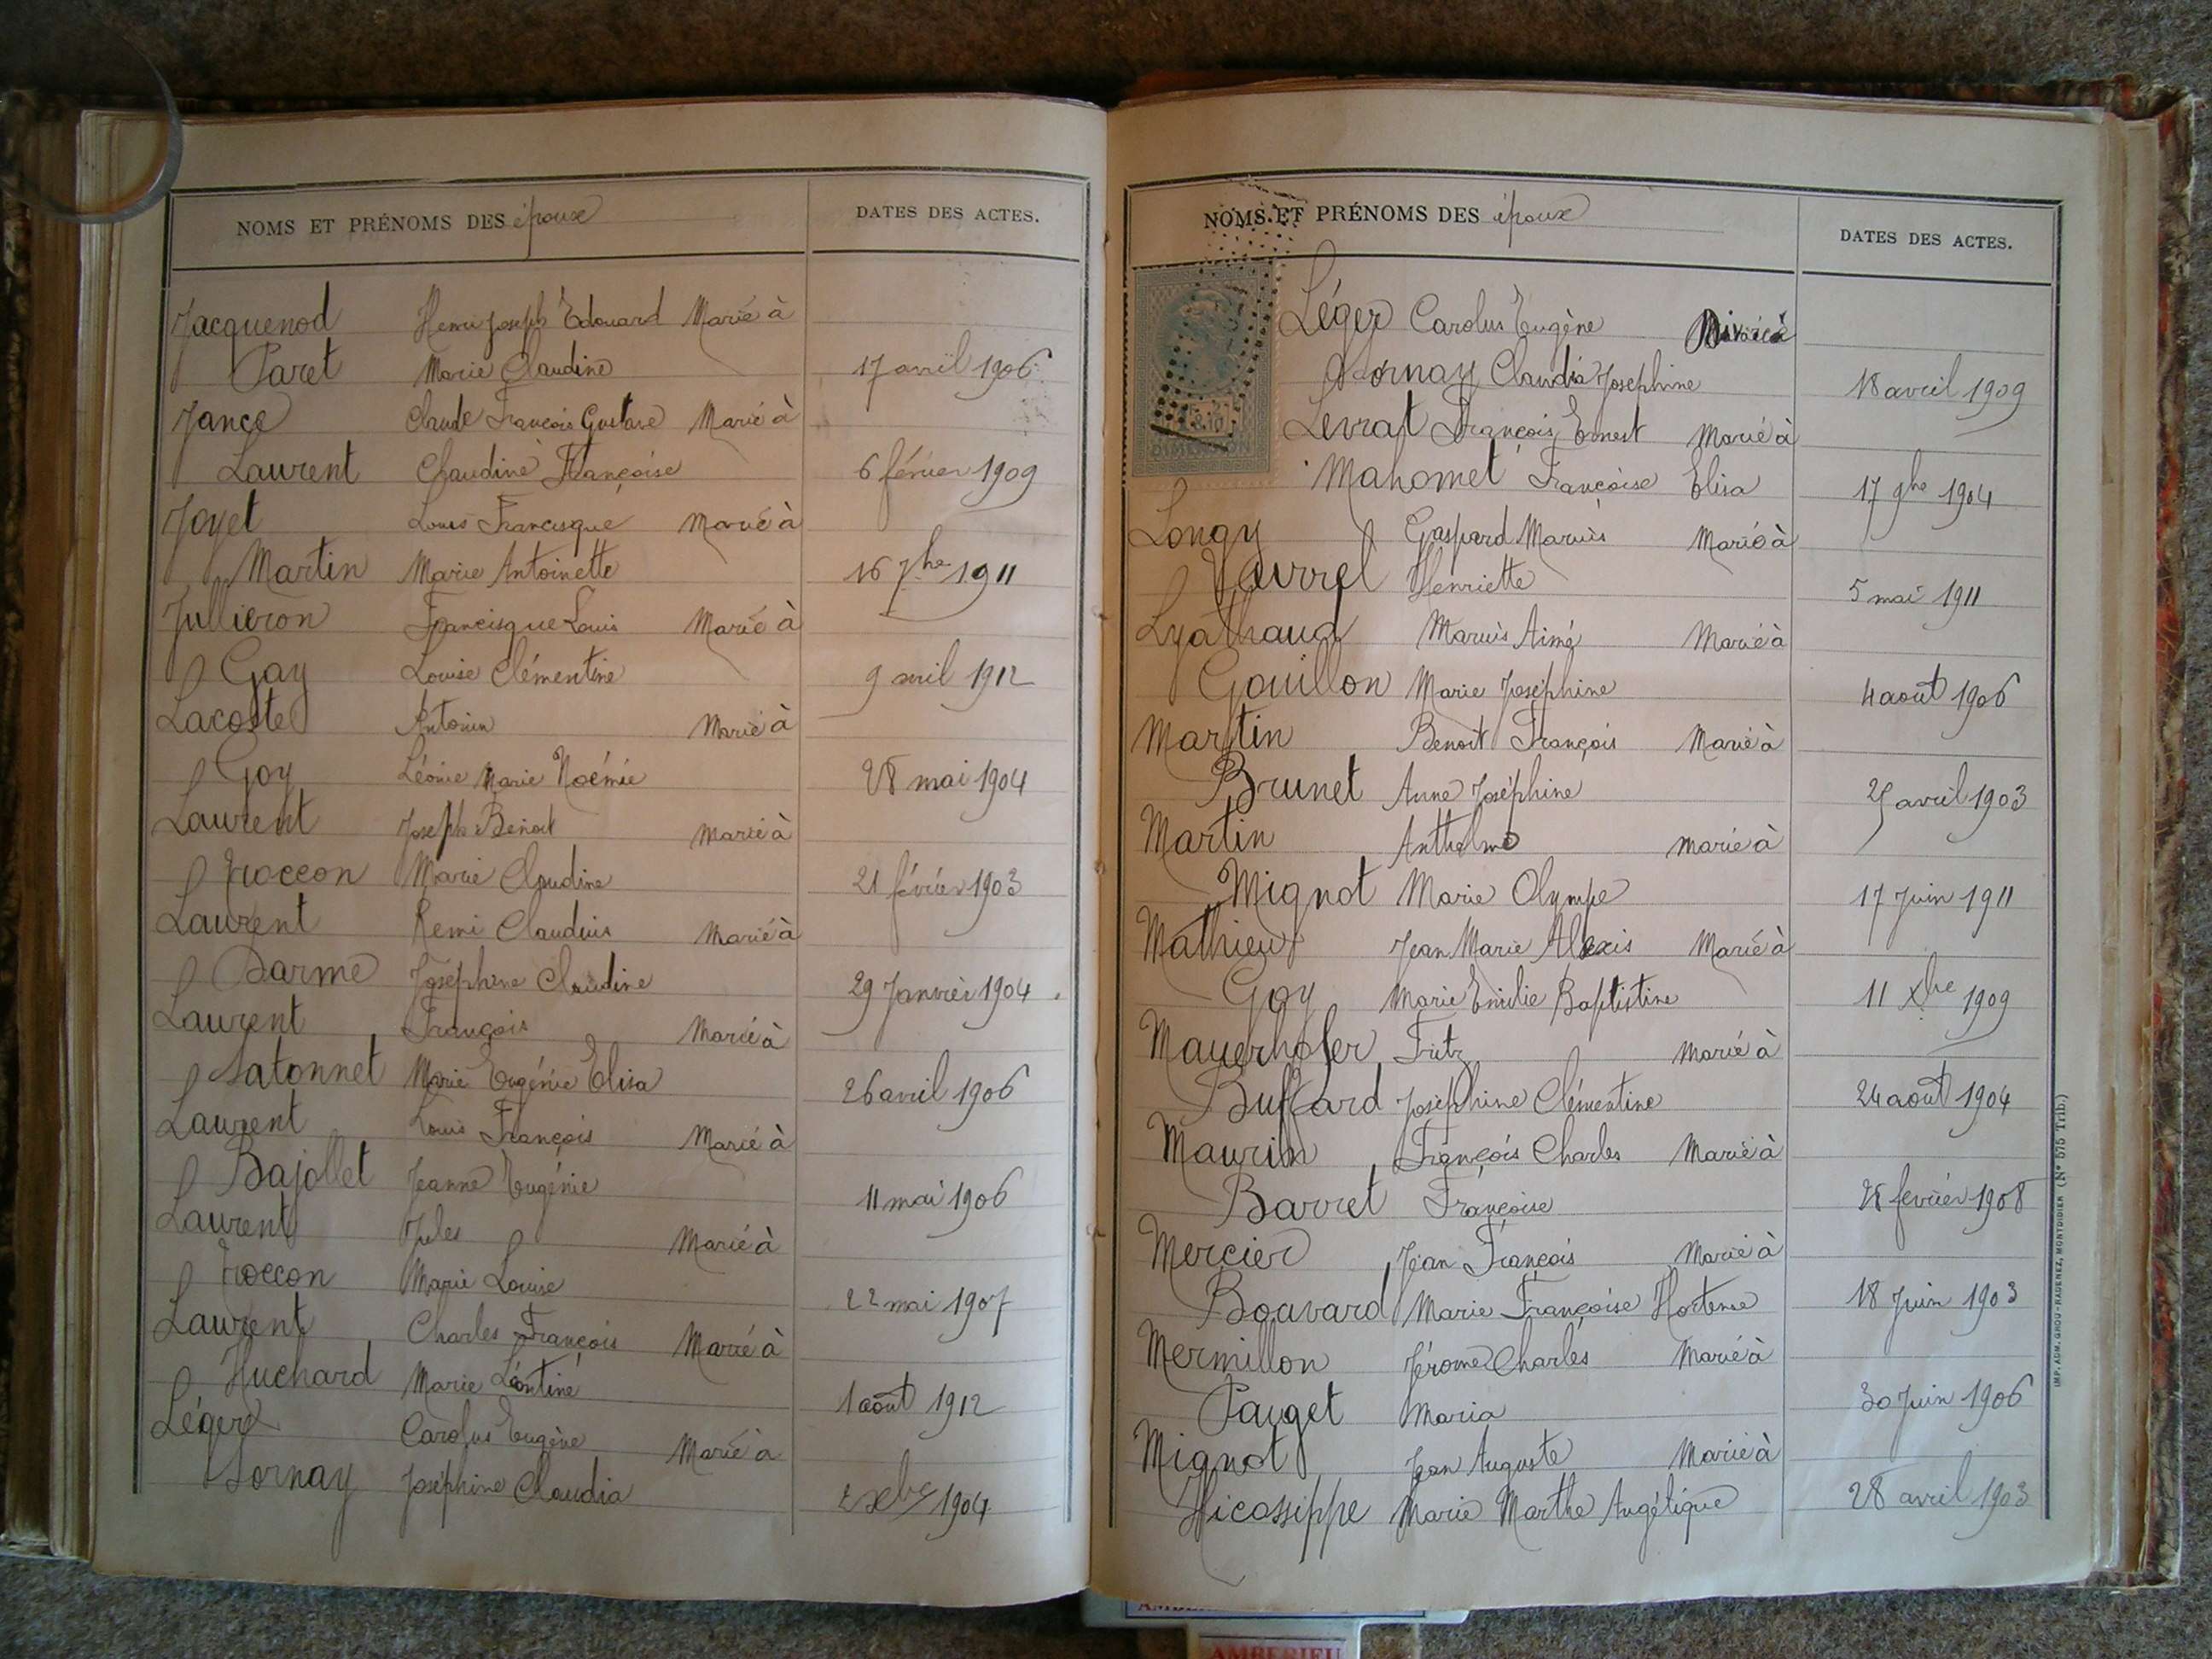 NOMS ET PRÉNOMS DES époux DATES DES ACTES.
Jacquenod Henri Joseph Édouard Marié à
Paret Marie Claudine 17 avril 1906
Jance Claude François Gustave Marié à
Laurent Claudine Françoise 6 février 1909
Joyet Louis Francisque Marié à
Martin Marie Antoinette 16 7bre 1911
Jullieron Francisque Louis Marié à
Gay Louise Clémentine 9 avril 1912
Lacoste Antonin Marié à
Goy Léonie Marie Noémie 28 mai 1904
Laurent Joseph Benoit Marié à
Troccon Marie Claudine 21 février 1903
Laurent Remi Claudius Marié à
Darme Joséphine Claudine 29 Janvier 1904
Laurent François Marié à
Satonnet Marie Eugénie Elisa 26 avril 1906
Laurent Louis François Marié à
Bajollet Jeanne Eugénie 11 mai 1906
Laurent Jules Marié à
Troccon Marie Louise 22 mai 1907
Laurent Charles François Marié à
Huchard Marie Léontine 1 août 1912
Léger Carolus Eugène Marié à
Sornay Joséphine Claudia 2 xbre 1904
NOMS ET PRÉNOMS DES époux DATES DES ACTES.
Léger Carolus Eugène Divorcé
Sornay Claudia Josephine 18 avril 1909
Levrat François Ernest Marié à
Mahomet Françoise Elisa 17 9bre 1904
Longy Gaspard Marius Marié à
Vavrel Henriette 5 mai 1911
Lyathaud Marius Aimé Marié à
Gouillon Marie Joséphine 4 août 1906
Martin Benoit François Marié à
Brunet Anne Joséphine 25 avril 1903
Martin Anthelme marié à
Mignot Marie Olympe 17 Juin 1911
Mathieu Jean Marie Alexis Marié à
Goy Marie Emilie Baptistine 11 Xbre 1909
Mauerhofer Fritz Marié à
Buffard Joséphine Clémentine 24 août 1904
Maurin François Charles Marié à
Barret Françoise 28 février 1908
Mercier Jean François Marié à
Bouvard Marie Françoise Hortense 18 Juin 1903
Mermillon Jérome Charles Marié à
Pauget Maria 30 Juin 1906
Mignot Jean Auguste Marié à
Hicossippe Marie Marthe Angélique 28 avril 1903
DIMENSION
IMP. ADM. GROU-RADENEZ, MONTDIDIER (N° 575 Trib.)
AMBERIEU